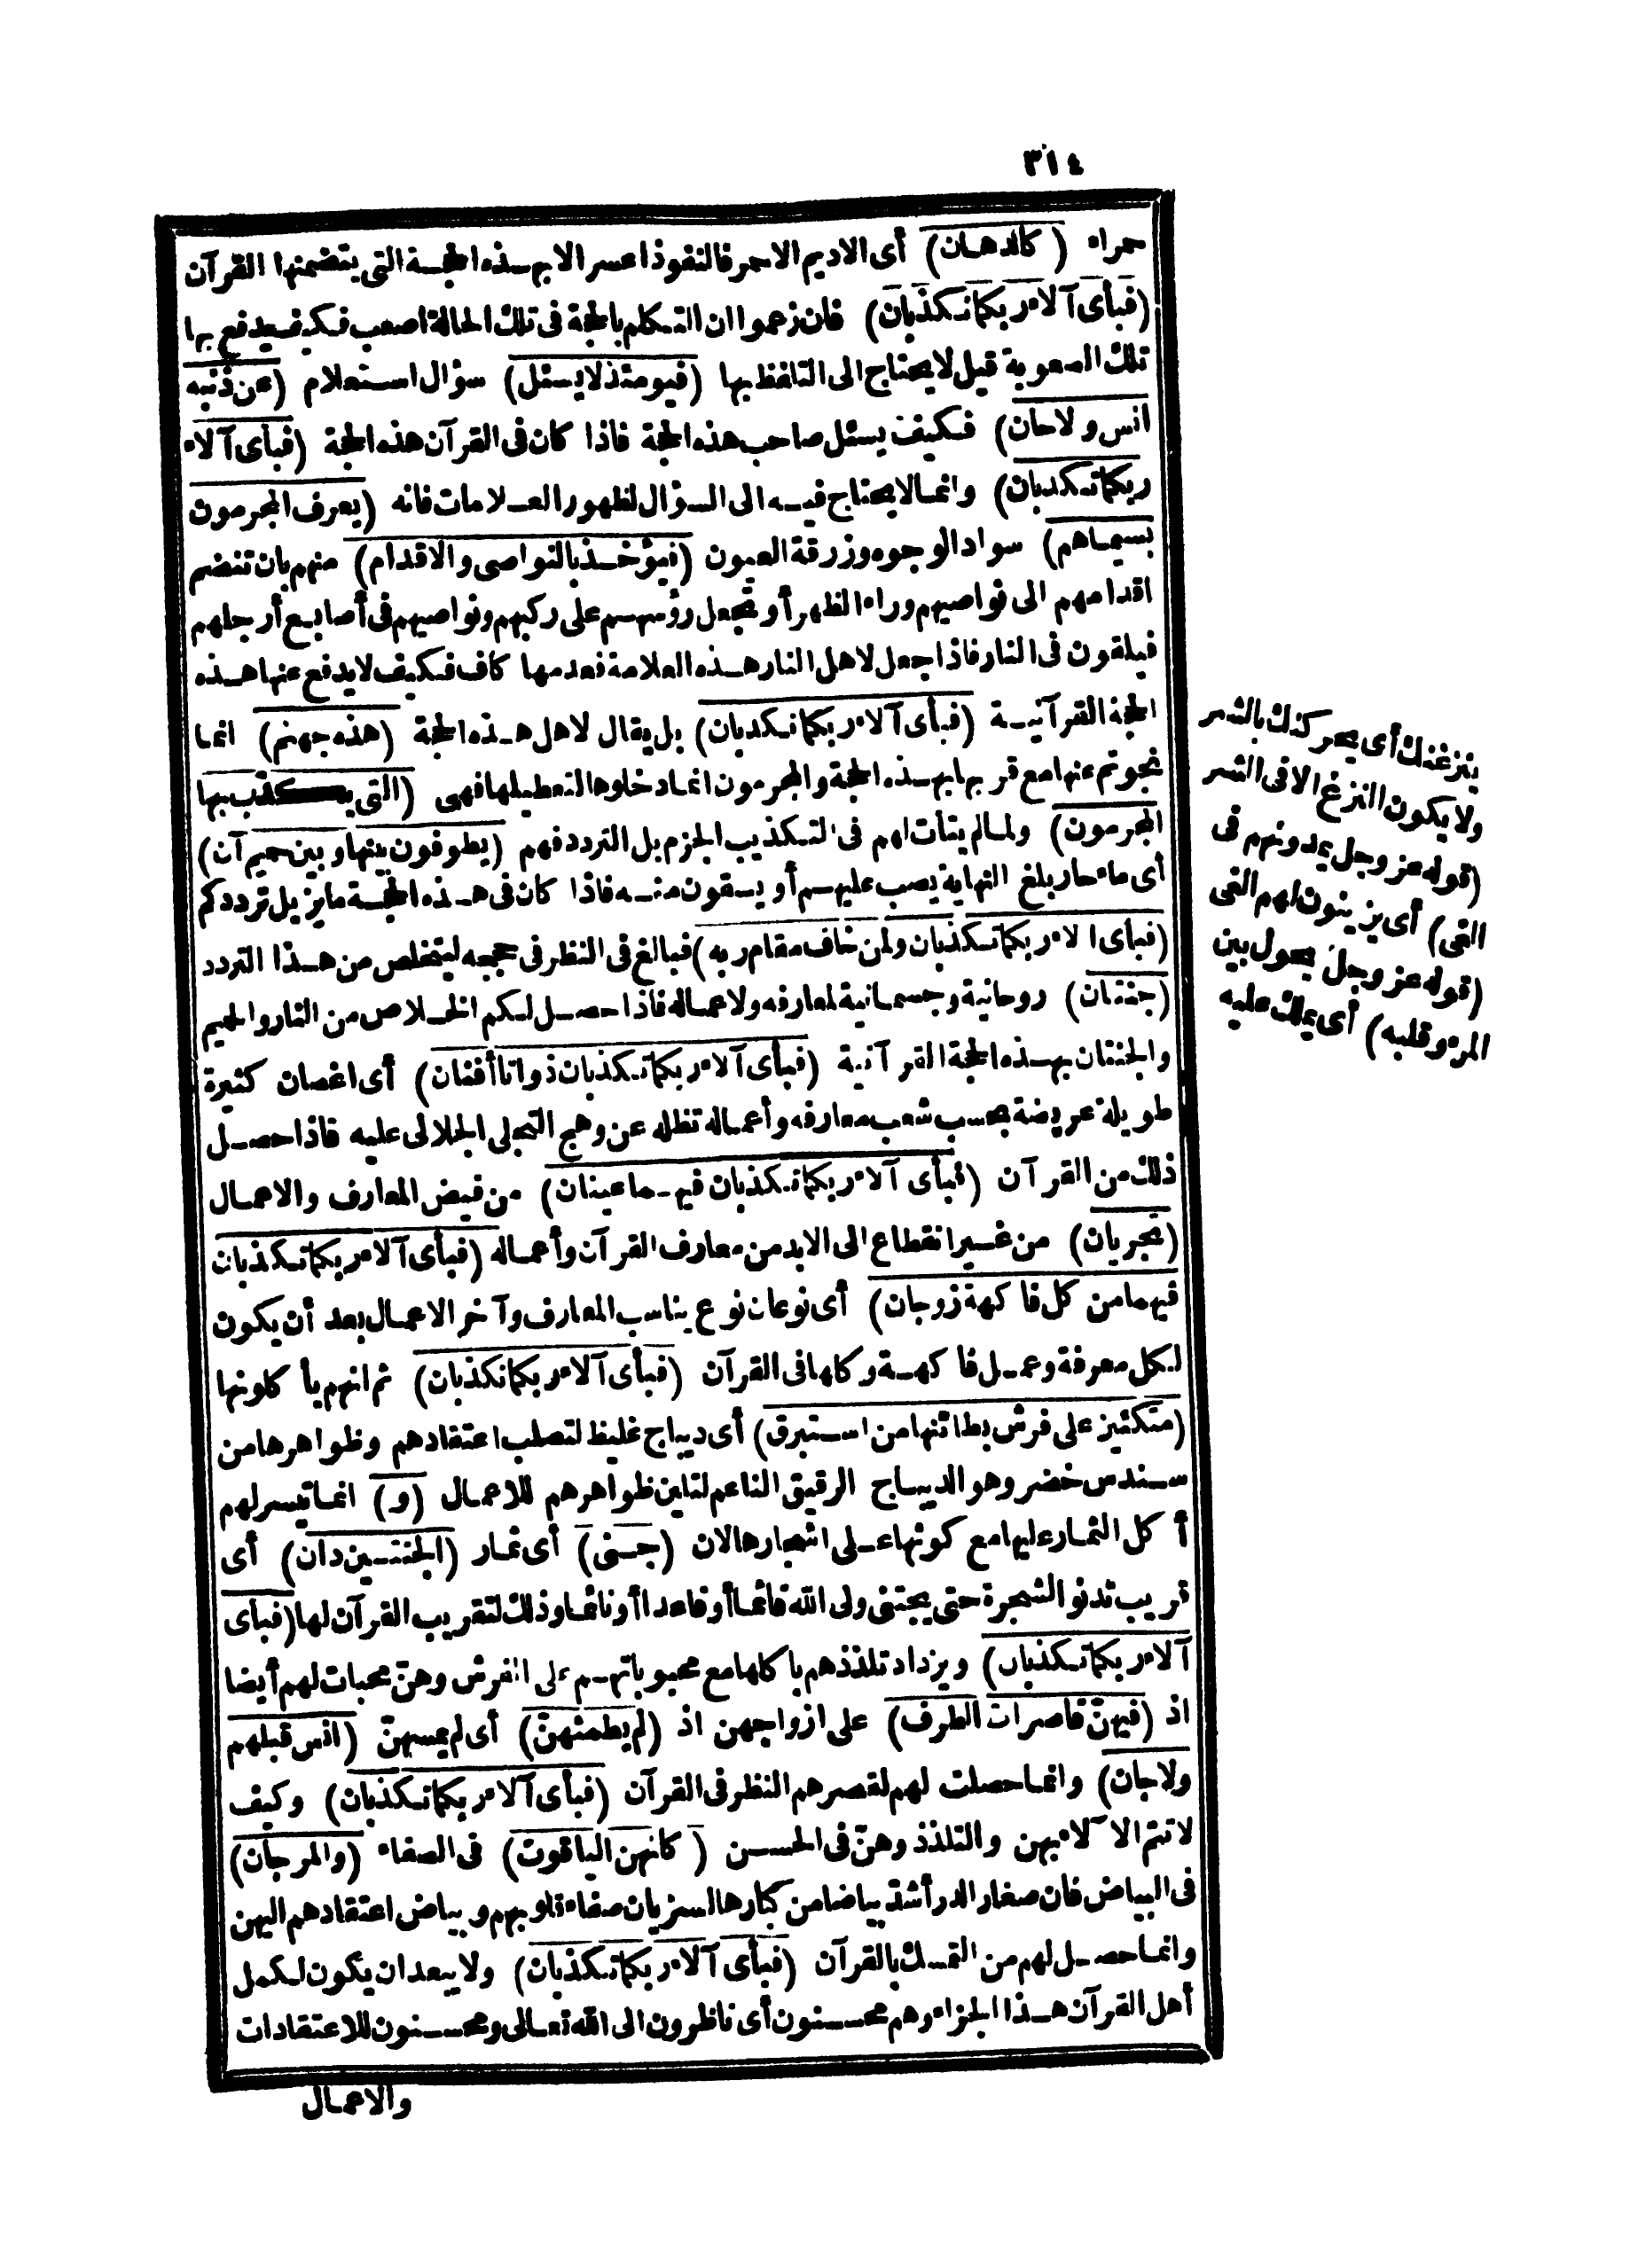 ٣١٤
حمراء (كالدهان) أى الاديم الاحمر فالنفوذ اعسر الا بهذه الحجة التى يتضمنها القرآن
(فبأى آلاء ربكما تكذبان) فان زعموا ان التكلم بالحجة فى تلك الحالة اصعب فكيف يدفع بها
تلك الصعوبة قيل لا يحتاج الى التلفظ بها (فيومئذ لا يسئل) سؤال استعلام (عن ذنبه
انس ولا جان) فكيف يسئل صاحب هذه الحجة فاذا كان فى القرآن هذه الحجة (فبأى آلاء
ربكما تكذبان) وانما لا يحتاج فيه الى السؤال لظهور العلامات فانه (يعرف المجرمون
بسيماهم) سواد الوجوه وزرقة العيون (فيؤخذ بالنواصى والاقدام) منهم بان تنضم
اقدامهم الى نواصيهم وراء الظهر أو تجعل رؤسهم على ركبهم ونواصيهم فى أصابع أرجلهم
فيلقون فى النار فاذا جعل لاهل النار هذه العلامة فعدمها كاف فكيف لا يدفع عنها هذه
الحجة القرآنية (فبأى آلاء ربكما تكذبان) بل يقال لاهل هذه الحجة (هذه جهنم) انما
نجوتم عنها مع قربها بهذه الحجة والمجرمون انما دخلوها لتعطيلها فهى (التى يكذب بها
المجرمون) ولما لم يتأت لهم فى التكذيب الجزم بل التردد فهم (يطوفون بينها وبين حميم آن)
أى ماء حار بلغ النهاية يصب عليهم أو يسقون منه فاذا كان فى هذه الحجة ما يزيل ترددكم
(فبأى آلاء ربكما تكذبان ولمن خاف مقام ربه) فبالغ فى النظر فى حججه ليتخلص من هذا التردد
(جنتان) روحانية وجسمانية لمعارفه ولاعماله فاذا حصل لكم الخلاص من النار والحميم
والجنتان بهذه الحجة القرآنية (فبأى آلاء ربكما تكذبان ذواتا أفنان) أى اغصان كثيرة
طويلة عريضة بحسب شعب معارفه وأعماله تظله عن وهج التجلى الجلالى عليه فاذا حصل
ذلك من القرآن (فبأى آلاء ربكما تكذبان فيهما عينان) من فيض المعارف والاعمال
(تجريان) من غير انقطاع الى الابد من معارف القرآن وأعماله (فبأى آلاء ربكما تكذبان
فيهما من كل فاكهة زوجان) أى نوعان نوع يناسب المعارف وآخر الاعمال بعد أن يكون
لكل معرفة وعمل فاكهة وكلها فى القرآن (فبأى آلاء ربكما تكذبان) ثم انهم يأكلونها
(متكئين على فرش بطائنها من استبرق) أى ديباج غليظ لتصلب اعتقادهم وظواهرها من
سندس خضر وهو الديباج الرقيق الناعم لتلين ظواهرهم للاعمال (و) انما تيسر لهم
أكل الثمار عليها مع كونها على اشجارها لان (جنى) أى ثمار (الجنتين دان) أى
قريب تدنو الشجرة حتى يجتنى ولى الله قائما أو قاعدا أو نائما وذلك لتقريب القرآن لها (فبأى
آلاء ربكما تكذبان) ويزداد تلذذهم باكلها مع محبوباتهم على الفرش وهن محبات لهم أيضا
اذ (فيهن قاصرات الطرف) على ازواجهن اذ (لم يطمثهن) أى لم يمسهن (انس قبلهم
ولا جان) وانما حصلت لهم لقصرهم النظر فى القرآن (فبأى آلاء ربكما تكذبان) وكيف
لا تتم الآلاء بهن والتلذذ وهن فى الحسن (كأنهن الياقوت) فى الصفاء (والمرجان)
فى البياض فان صغار الدر أشد بياضا من كبارها لسريان صفاء قلوبهم وبياض اعتقادهم اليهن
وانما حصل لهم من التمسك بالقرآن (فبأى آلاء ربكما تكذبان) ولا يبعد ان يكون لكمل
أهل القرآن هذا الجزاء وهم محسنون أى ناظرون الى الله تعالى ومحسنون للاعتقادات
والاعمال
ينزغنك أى يحركنك بالشر
ولا يكون النزغ الا فى الشر
(قوله عز وجل يمدونهم فى
الغى) أى يزينون لهم الغى
(قوله عز وجل يحول بين
المرء وقلبه) أى يملك عليه